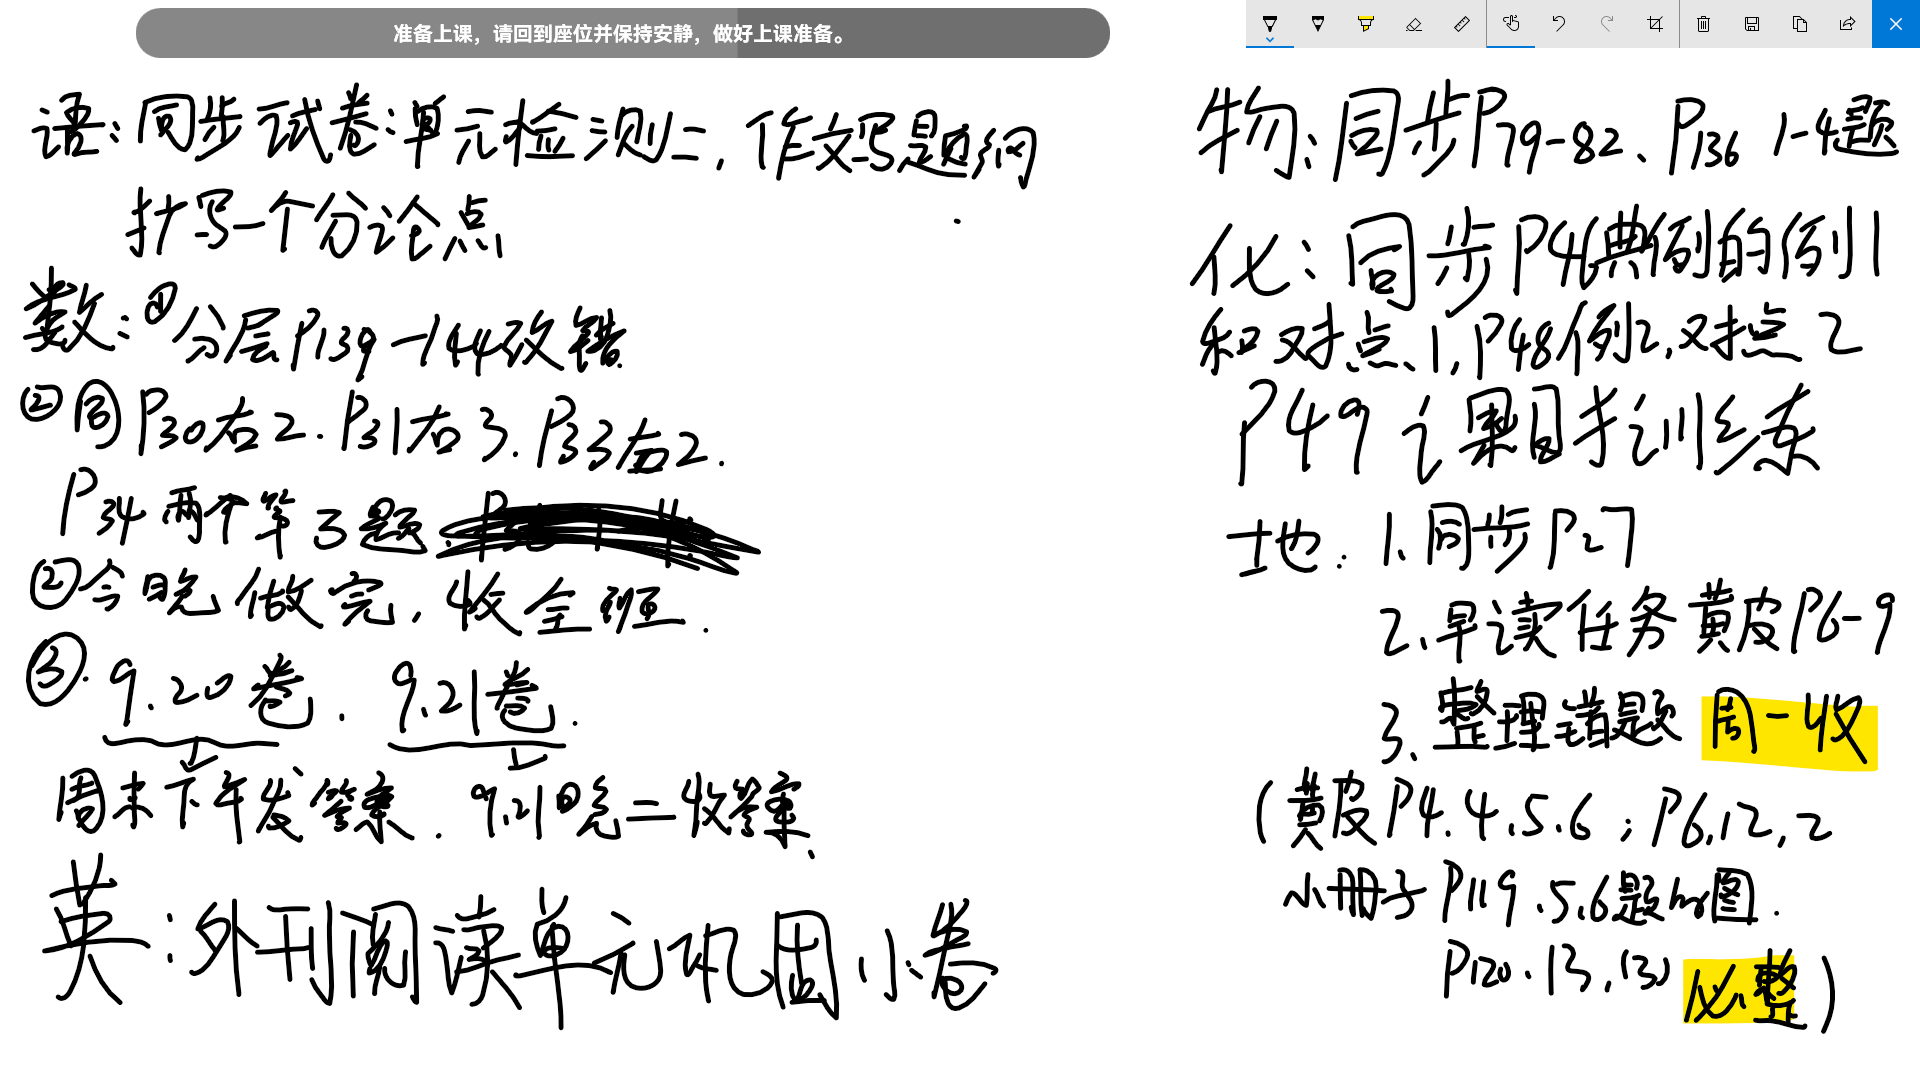 准备上课，请回到座位并保持安静，做好上课准备。
语：同步试卷：单元检测二，作文写题纲
抄写一个分论点
数：①分层P139-144改错
②同P30右2．P31右3．P33右2．
P34两个第3题
②今晚做完，收全班．
③．9.20卷．9.21卷．
周末下午发答案．9.21日晚二收答案．
英：外刊阅读单元巩固小卷
物：同步P79-82、P136 1-4题
化：同步P46典例的例1
和对点、1，P48例2，对点2
P49 课时训练
地：1、同步P27
2、早读任务黄皮P6-9
3、整理错题 周一收
（黄皮P4．4.5.6；P6.12，2
小册子P119．5.6题的图．
P120．13，(3) 必整）